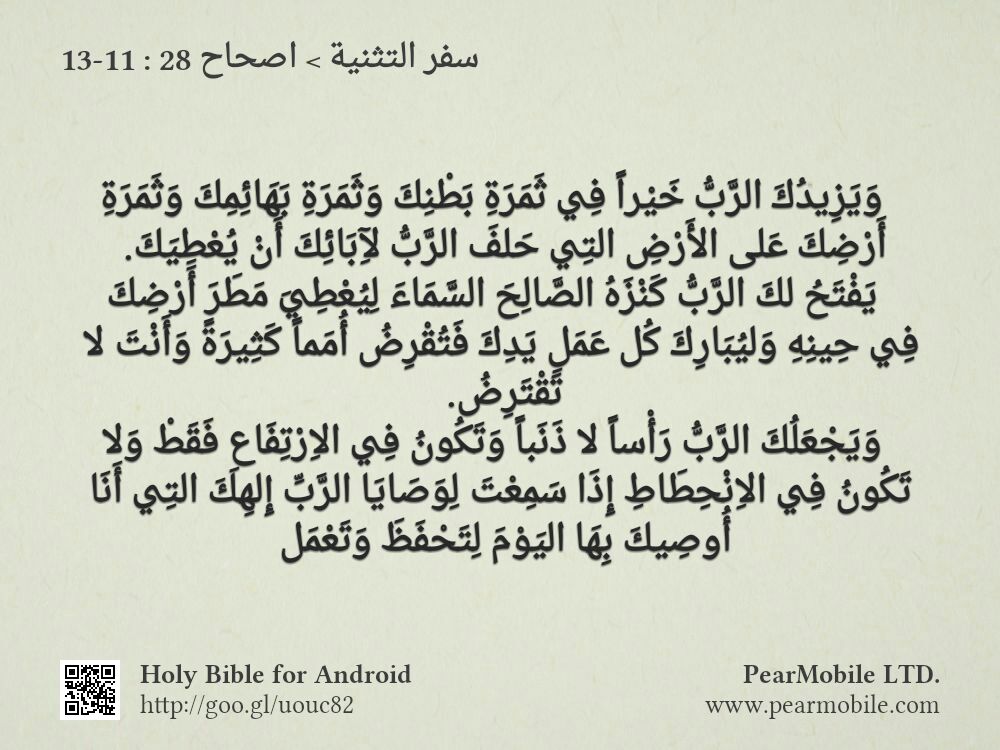 سفر التثنية > اصحاح 28 : 11-13
وَيَزِيدُكَ الرَّبُّ خَيْراً فِي ثَمَرَةِ بَطْنِكَ وَثَمَرَةِ بَهَائِمِكَ وَثَمَرَةِ
أَرْضِكَ عَلى الأَرْضِ التِي حَلفَ الرَّبُّ لآِبَائِكَ أَنْ يُعْطِيَكَ.
يَفْتَحُ لكَ الرَّبُّ كَنْزَهُ الصَّالِحَ السَّمَاءَ لِيُعْطِيَ مَطَرَ أَرْضِكَ
فِي حِينِهِ وَليُبَارِكَ كُل عَمَلِ يَدِكَ فَتُقْرِضُ أُمَماً كَثِيرَةً وَأَنْتَ لا
تَقْتَرِضُ.
وَيَجْعَلُكَ الرَّبُّ رَأْساً لا ذَنَباً وَتَكُونُ فِي الاِرْتِفَاعِ فَقَطْ وَلا
تَكُونُ فِي الاِنْحِطَاطِ إِذَا سَمِعْتَ لِوَصَايَا الرَّبِّ إِلهِكَ التِي أَنَا
أُوصِيكَ بِهَا اليَوْمَ لِتَحْفَظَ وَتَعْمَل
Holy Bible for Android
http://goo.gl/uouc82
PearMobile LTD.
www.pearmobile.com